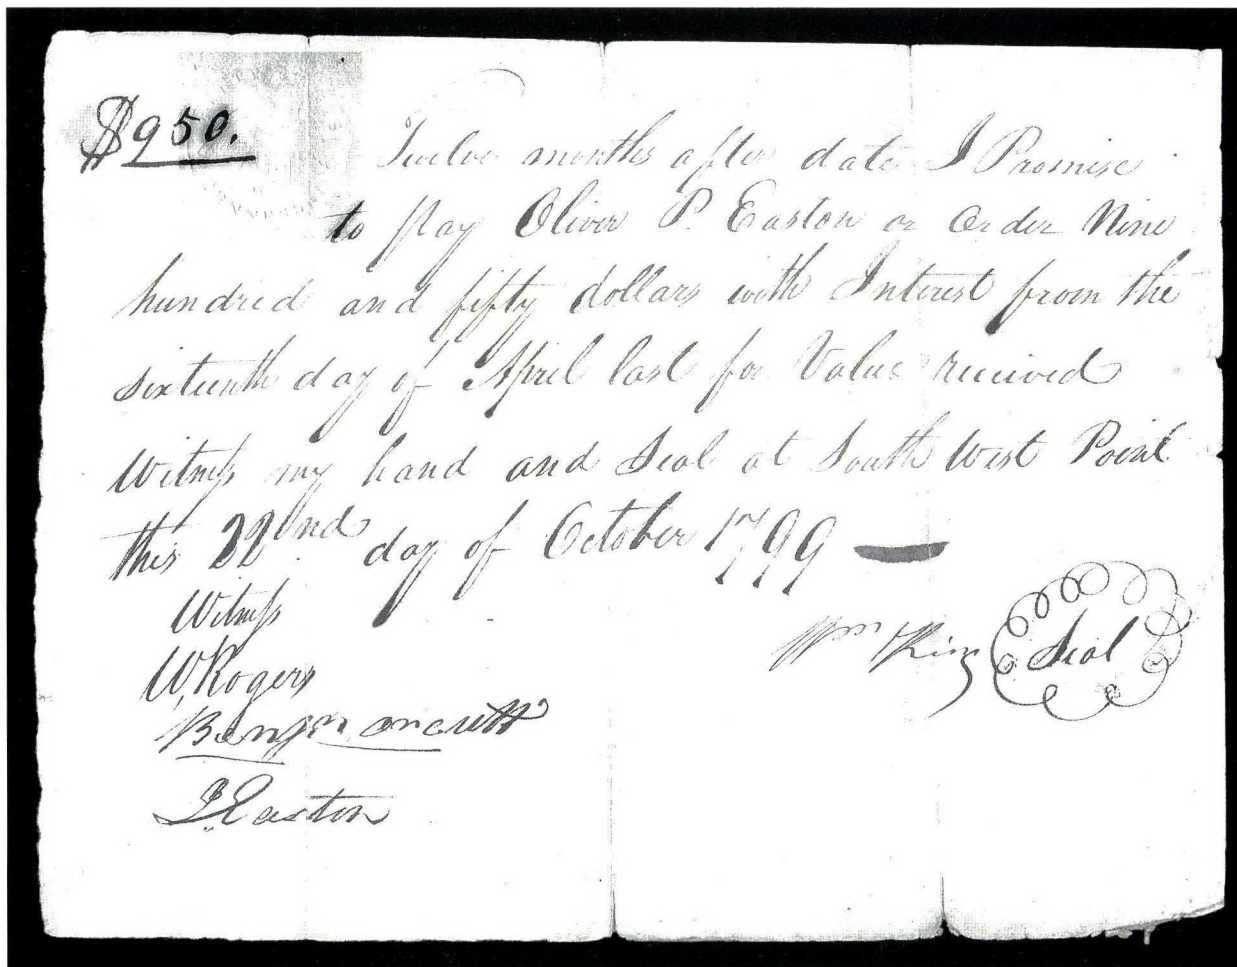 $950.
Twelve months after date I Promise
to pay Oliver P. Easton or Order Nine
hundred and fifty dollars with Interest from the
sixteenth day of April last for Value received
Witness my hand and Seal at South West Point
this 22nd day of October 1799
Witness
W, Rogers
Benjn
J. Easton
Wm King Seal